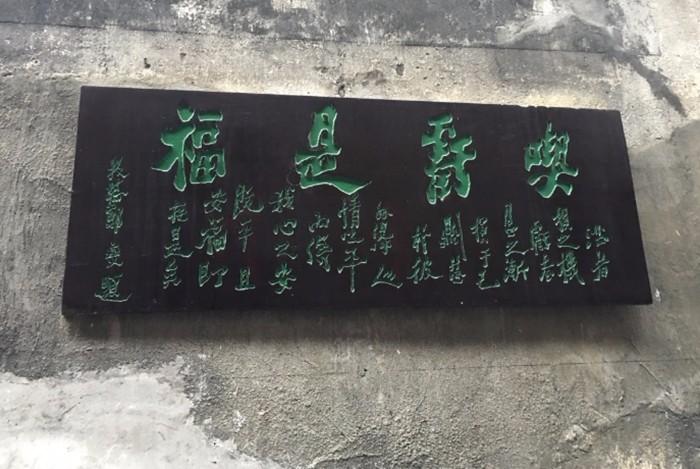 喫虧是福
滿者
損之機
虧者
盈之漸
損于己
則益
於彼
外得人
情之平
內得
我心之安
既平且
安福即
在是矣
板橋鄭燮題